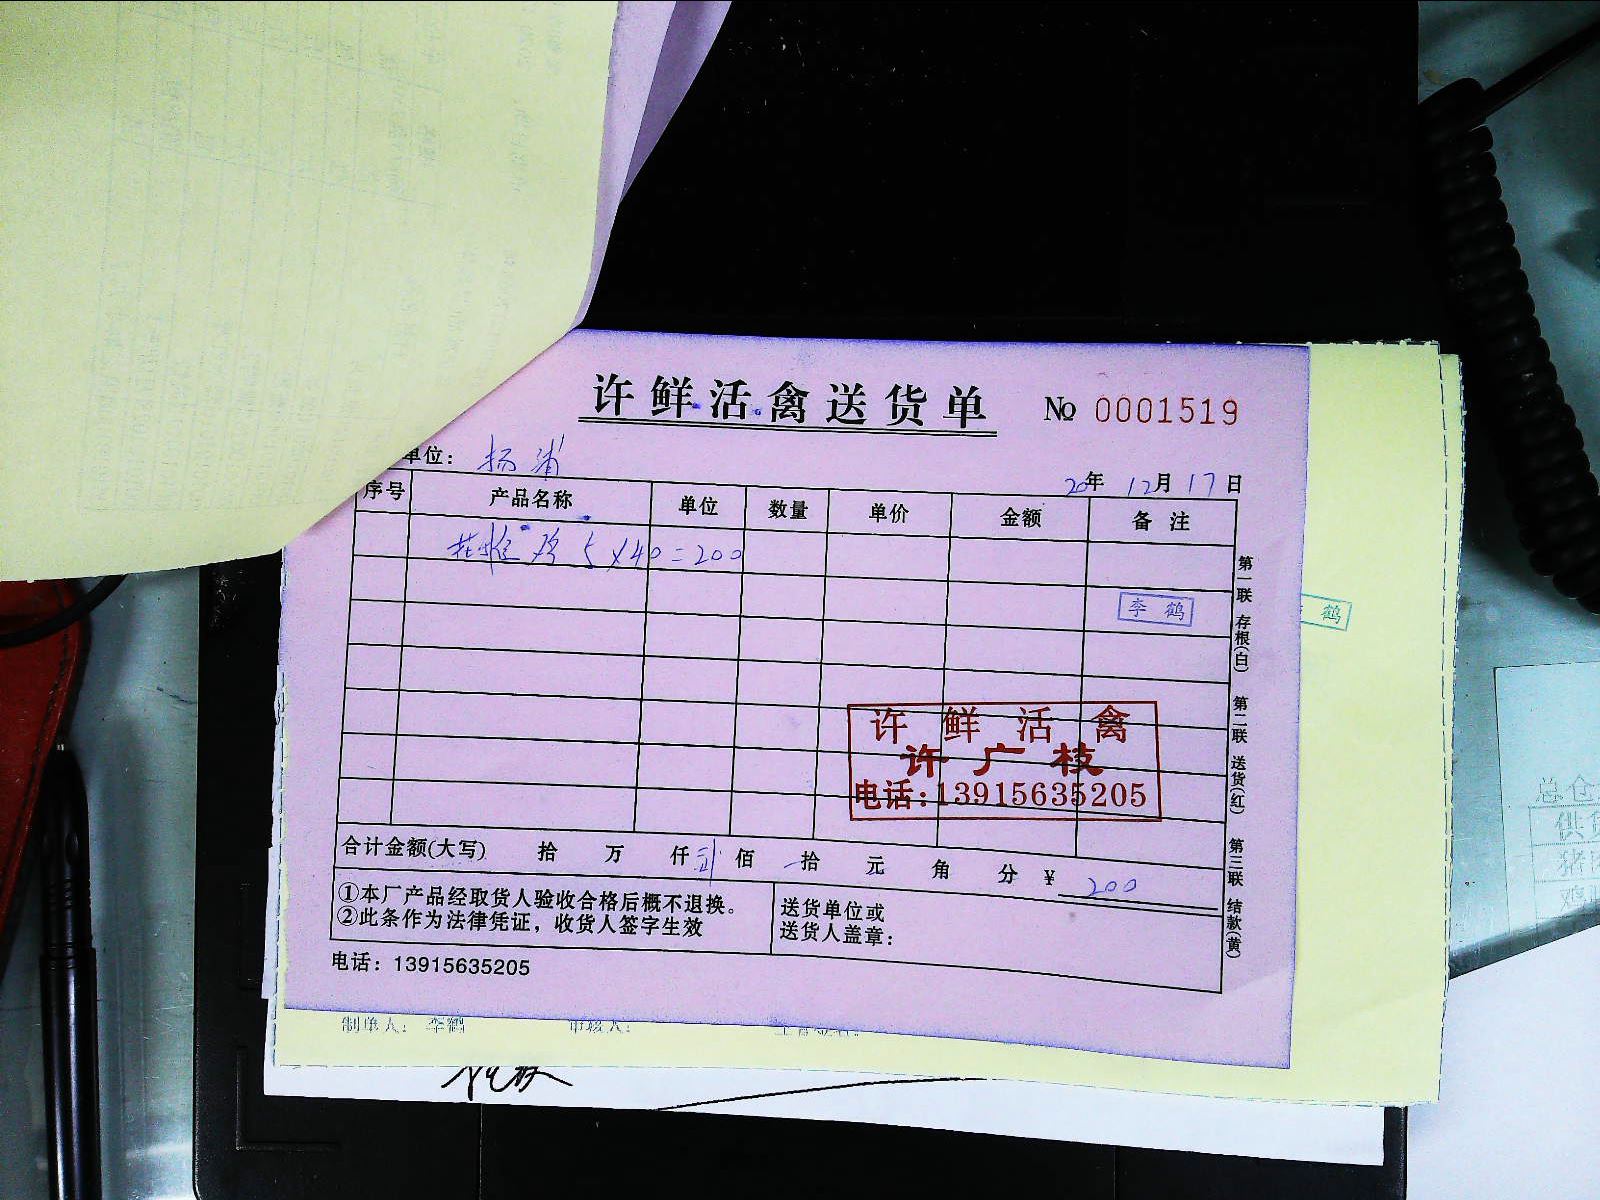 许鲜活禽送货单 No 0001519
单位: 杨浦
20年 12月 17日
序号 产品名称 单位 数量 单价 金额 备注
花雌鸡 5×40=200
李鹤
鹤
许鲜活禽
许广枝
电话:13915635205
合计金额(大写) 拾 万 仟 贰 佰 拾 元 角 分 ¥ 200
①本厂产品经取货人验收合格后概不退换。
②此条作为法律凭证，收货人签字生效
送货单位或
送货人盖章:
电话: 13915635205
第一联 存根(白) 第二联 送货(红) 第三联 结款(黄)
制单人: 李鹤 审核人:
总仓
供货